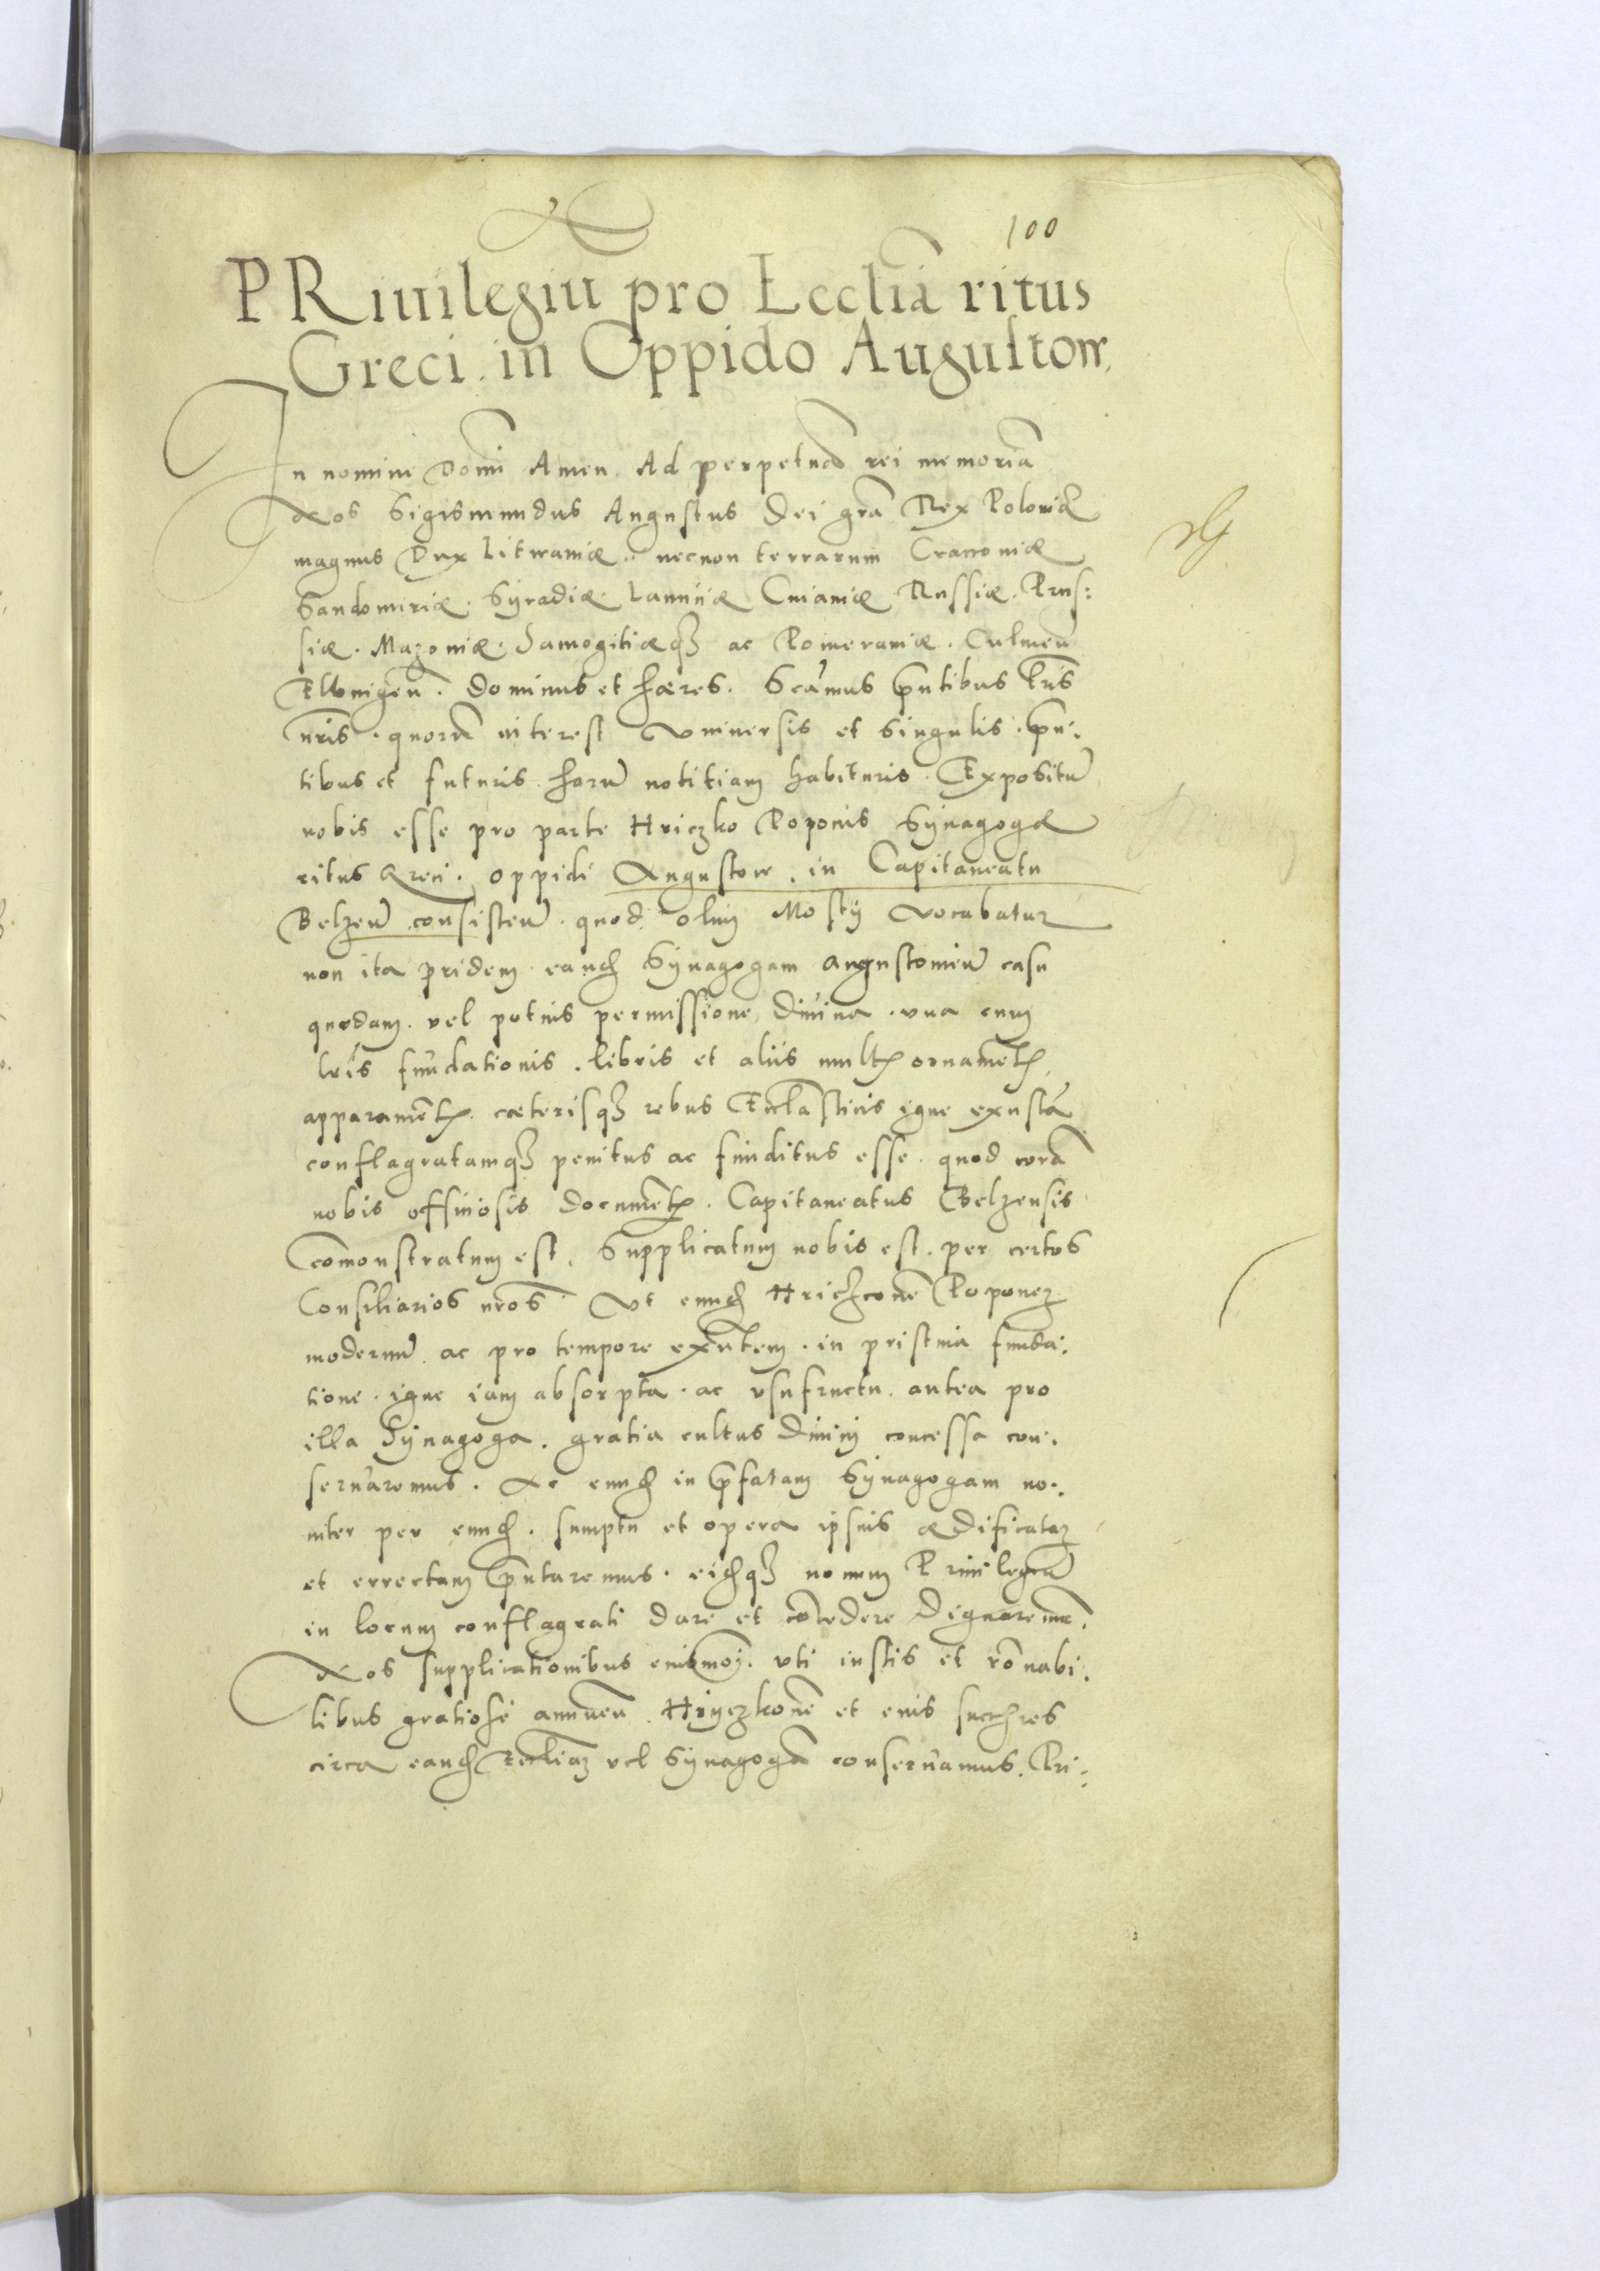 100
PRiuilegiū pro Eccliā ritus
Greci in Oppido Augustow
In nomine Domī Amen Ad perpetuā rei memoriā
Nos Sigismundus Augustus Dei grā Rex Poloniæ
magnus Dux Litwaniæ necnon terrarum Cracouiæ
Sandomiriæ Syradiæ Lanciciæ Cuiauiæ Russiæ Prus:
siæ Mazouiæ Samogitiæq3 ac Pomeraniæ Culmeñ
Elbingeñ dominus et hæres
nrīs quorū interest vniuersis et singulis pñ:
tibus et futuris harū notitiam habituris Expositū
nobis esse pro parte Hriczko Poponis Synagogæ
ritus Greci oppidi Augustow in Capitaneatu
Belzeñ consisteñ quod olim Mosty vocabatur
non ita pridem eand Synagogam augustouieñ casu
quodam vel potius permissione diuina vna cum
lrīs fundationis libris et aliis mult ornamēt
apparamēt cæterisq3 rebus Ecclāsticis igne exustā
conflagratamq3 penitus ac funditus esse quod corā
nobis officiosis documēt Capitaneatus Belzensis
comonstratum est Supplicatum nobis est per certos
Consiliarios nrōs Vt eund Poponem
modernū ac pro tempore exñtem in pristina funda:
tione igne iam absorpta ac vsufructu antea pro
illa Synagoga gratia cultus diuini concessa con:
seruaremus Ac eund in pfatam Synagogam no:
uiter per eund sumptu et opera ipsius ædificatam
et errectam pñtaremus eidq3 nouum Priuilegiū
in locum conflagrati dare et cōcedere dignaremur
Nos supplicationibus eiusmoi vti iustis et rōnabi:
libus gratiose annueñ Hryczkonē et eius succres
circa eand eccliam vel Synagogā conseruamus Pri: